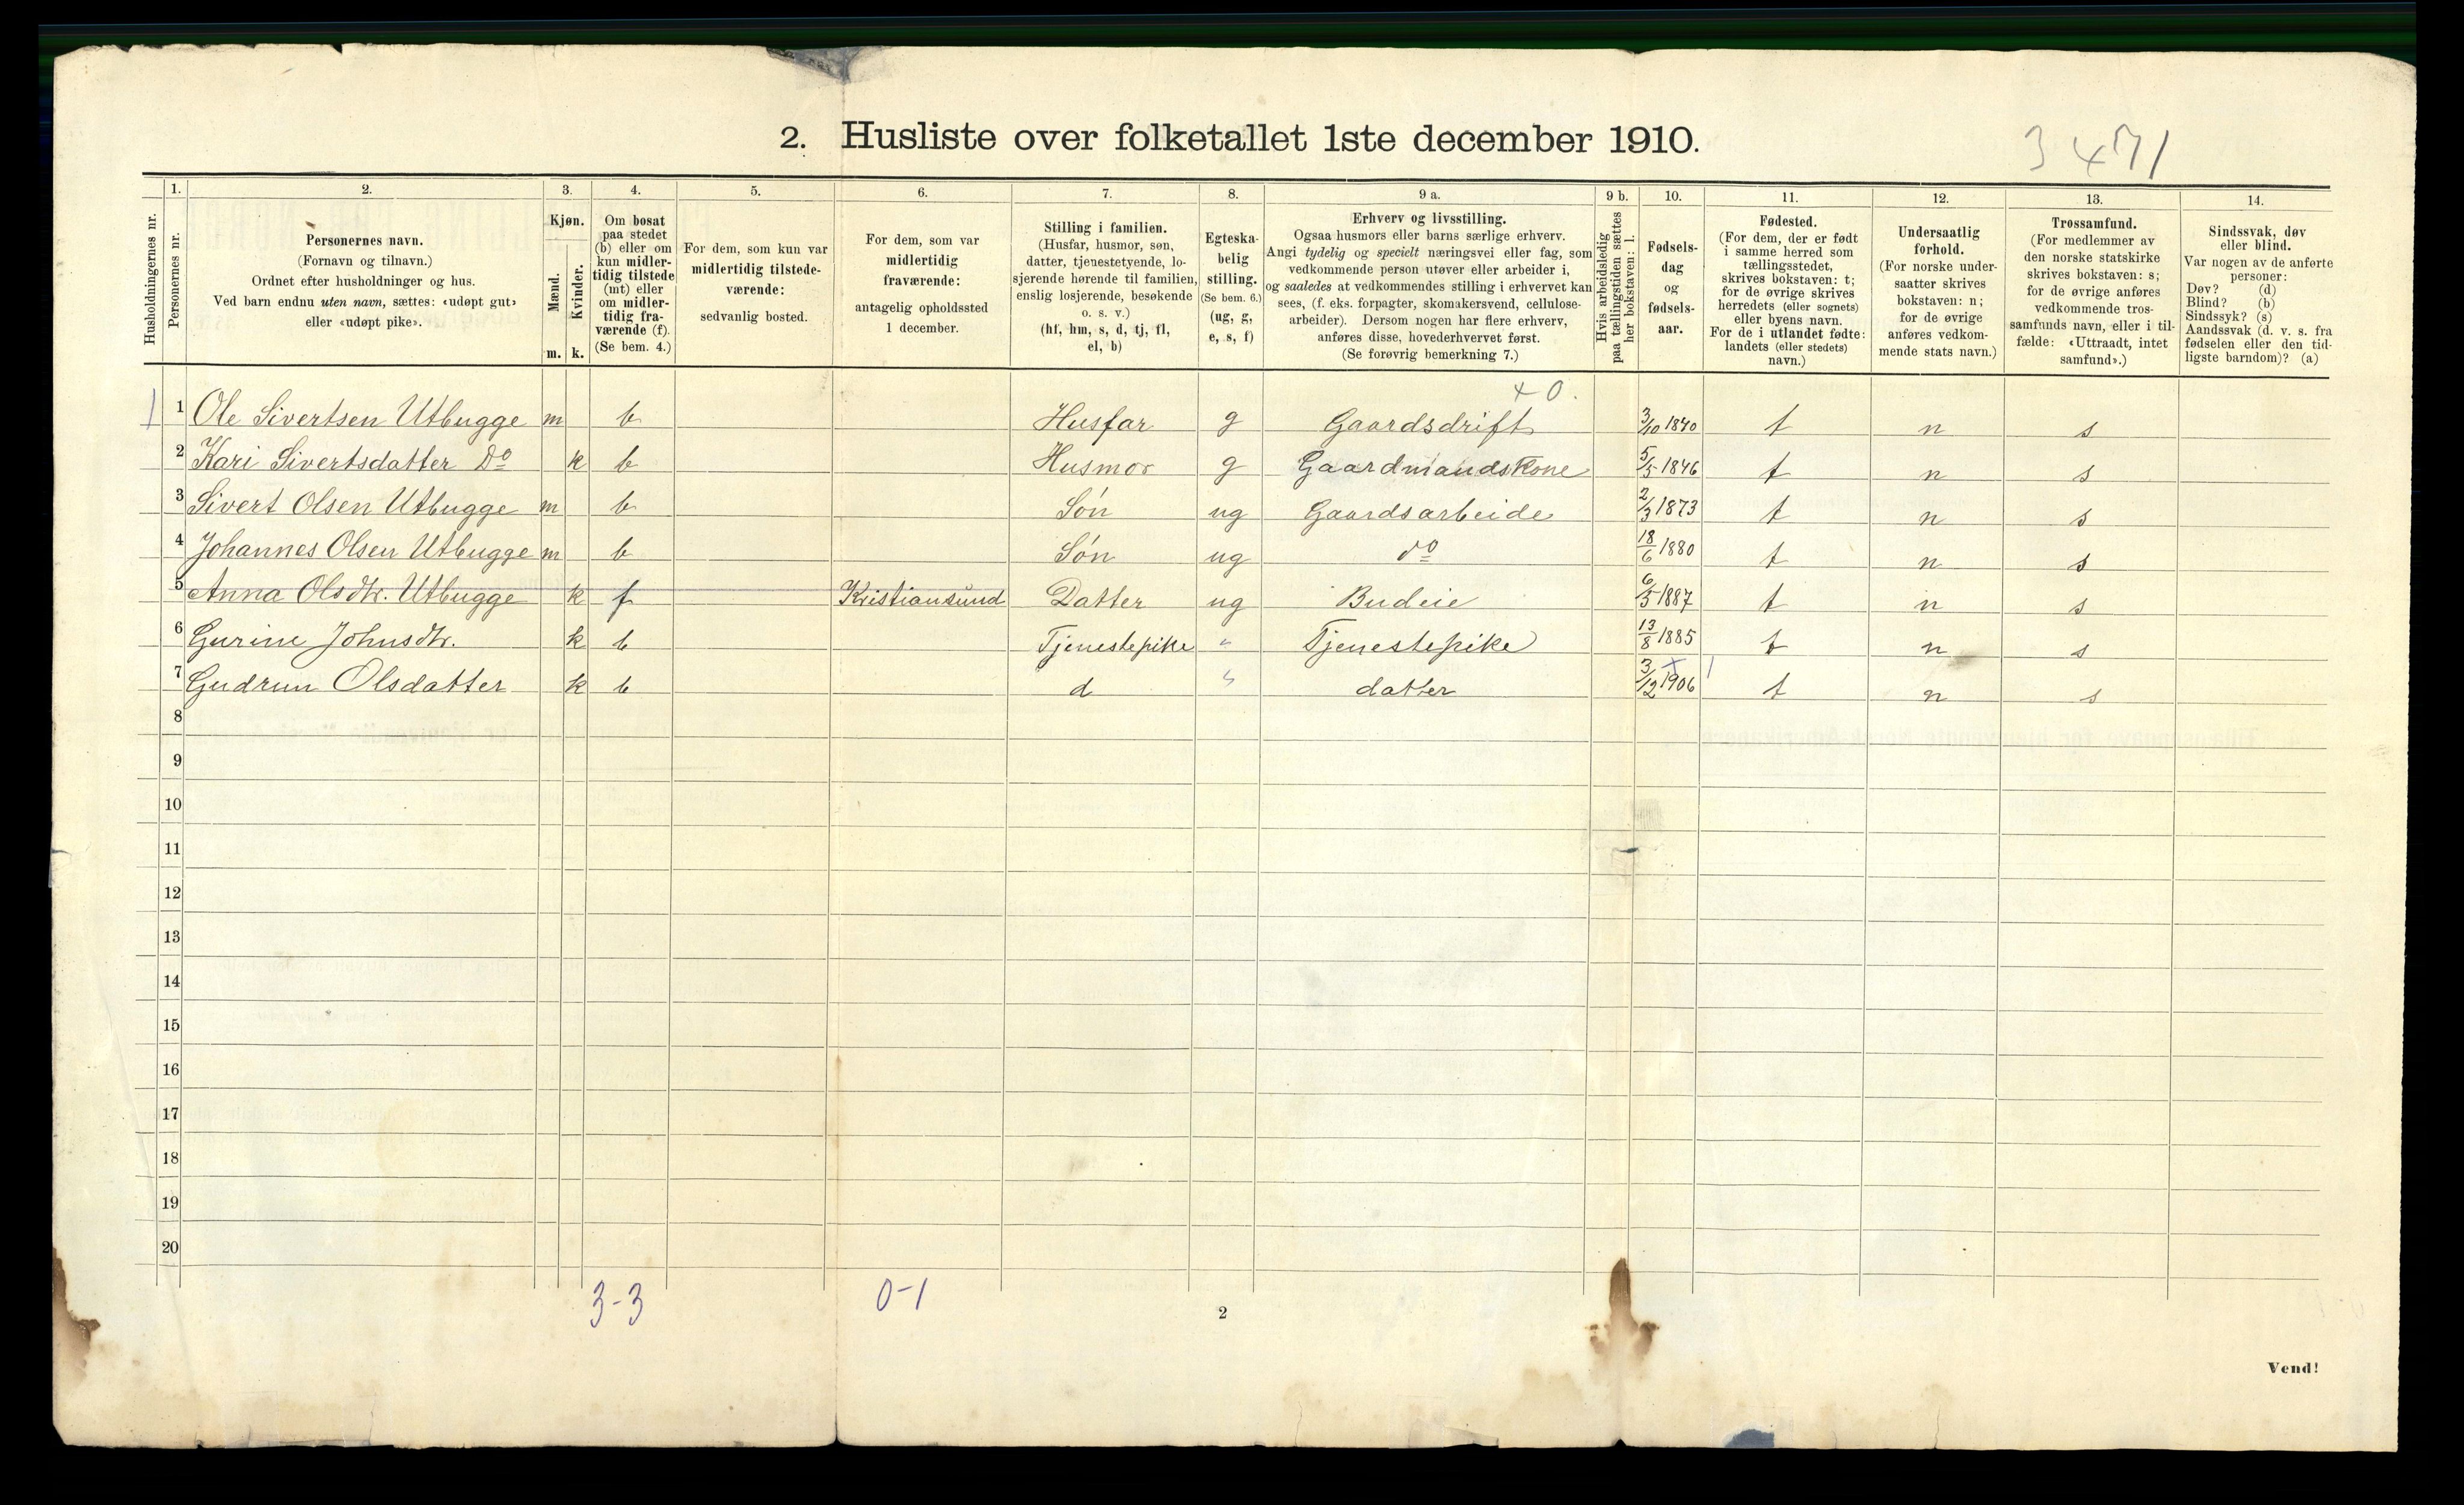 3471
2. Husliste over folketallet 1ste december 1910.
Husholdningernes nr.
1.
Personernes nr.
2.
Personernes navn.
(Fornavn og tilnavn.)
Ordnet efter husholdninger og hus.
Ved barn endnu uten navn, sættes: «udøpt gut»
eller «udøpt pike».
3.
Kjøn.
Mænd.
Kvinder.
m. k.
4.
Om bosat
paa stedet
(b) eller om
kun midler-
tidig tilstede
(mt) eller
om midler-
tidig fra-
værende (f).
(Se bem. 4.)
5.
For dem, som kun var
midlertidig tilstede-
værende:
sedvanlig bosted.
6.
For dem, som var
midlertidig
fraværende:
antagelig opholdssted
1 december.
7.
Stilling i familien.
(Husfar, husmor, søn,
datter, tjenestetyende, lo-
sjerende hørende til familien,
enslig losjerende, besøkende
o. s. v.)
(hf, hm, s, d, tj, fl,
el, b)
8.
Egteska-
belig
stilling.
(Se bem. 6.)
(ug, g,
e, s, f)
9 a.
Erhverv og livsstilling.
Ogsaa husmors eller barns særlige erhverv.
Angi tydelig og specielt næringsvei eller fag, som
vedkommende person utøver eller arbeider i,
og saaledes at vedkommendes stilling i erhvervet kan
sees, (f. eks. forpagter, skomakersvend, cellulose-
arbeider). Dersom nogen har flere erhverv,
anføres disse, hovederhvervet først.
(Se forøvrig bemerkning 7.)
9 b.
Hvis arbeidsledig
paa tællingstiden sættes
her bokstaven: l.
10.
Fødsels-
dag
og
fødsels-
aar.
11.
Fødested.
(For dem, der er født
i samme herred som
tællingsstedet,
skrives bokstaven: t;
for de øvrige skrives
herredets (eller sognets)
eller byens navn.
For de i utlandet fødte:
landets (eller stedets)
navn.)
12.
Undersaatlig
forhold.
(For norske under-
saatter skrives
bokstaven: n;
for de øvrige
anføres vedkom-
mende stats navn.)
13.
Trossamfund.
(For medlemmer av
den norske statskirke
skrives bokstaven: s;
for de øvrige anføres
vedkommende tros-
samfunds navn, eller i til-
fælde: «Uttraadt, intet
samfund».)
14.
Sindssvak, døv
eller blind.
Var nogen av de anførte
personer:
Døv? (d)
Blind? (b)
Sindssyk? (s)
Aandssvak (d. v. s. fra
fødselen eller den tid-
ligste barndom)? (a)
+ 0.
1 1 Ole Sivertsen Utbugge m b Husfar g Gaardsdrift 3/10 1840 t n s
2 Kari Sivertsdatter Do k b Husmor g Gaardmandskone 5/5 1846 t n s
3 Sivert Olsen Utbugge m b Søn ug Gaardsarbeide 2/3 1873 t n s
4 Johannes Olsen Utbugge m b Søn ug do 18/6 1880 t n s
5 Anna Olsdtr. Utbugge k f Kristiansund Datter ug Budeie 6/5 1887 t n s
6 Gurine Johnsdtr. k b Tjenestepike " Tjenestepike 13/8 1885 t n s
7 Gudrun Olsdatter k b d " datter 3/12 1906 t n s
8
9
10
11
12
13
14
15
16
17
18
19
20
3-3 0-1
2
Vend!